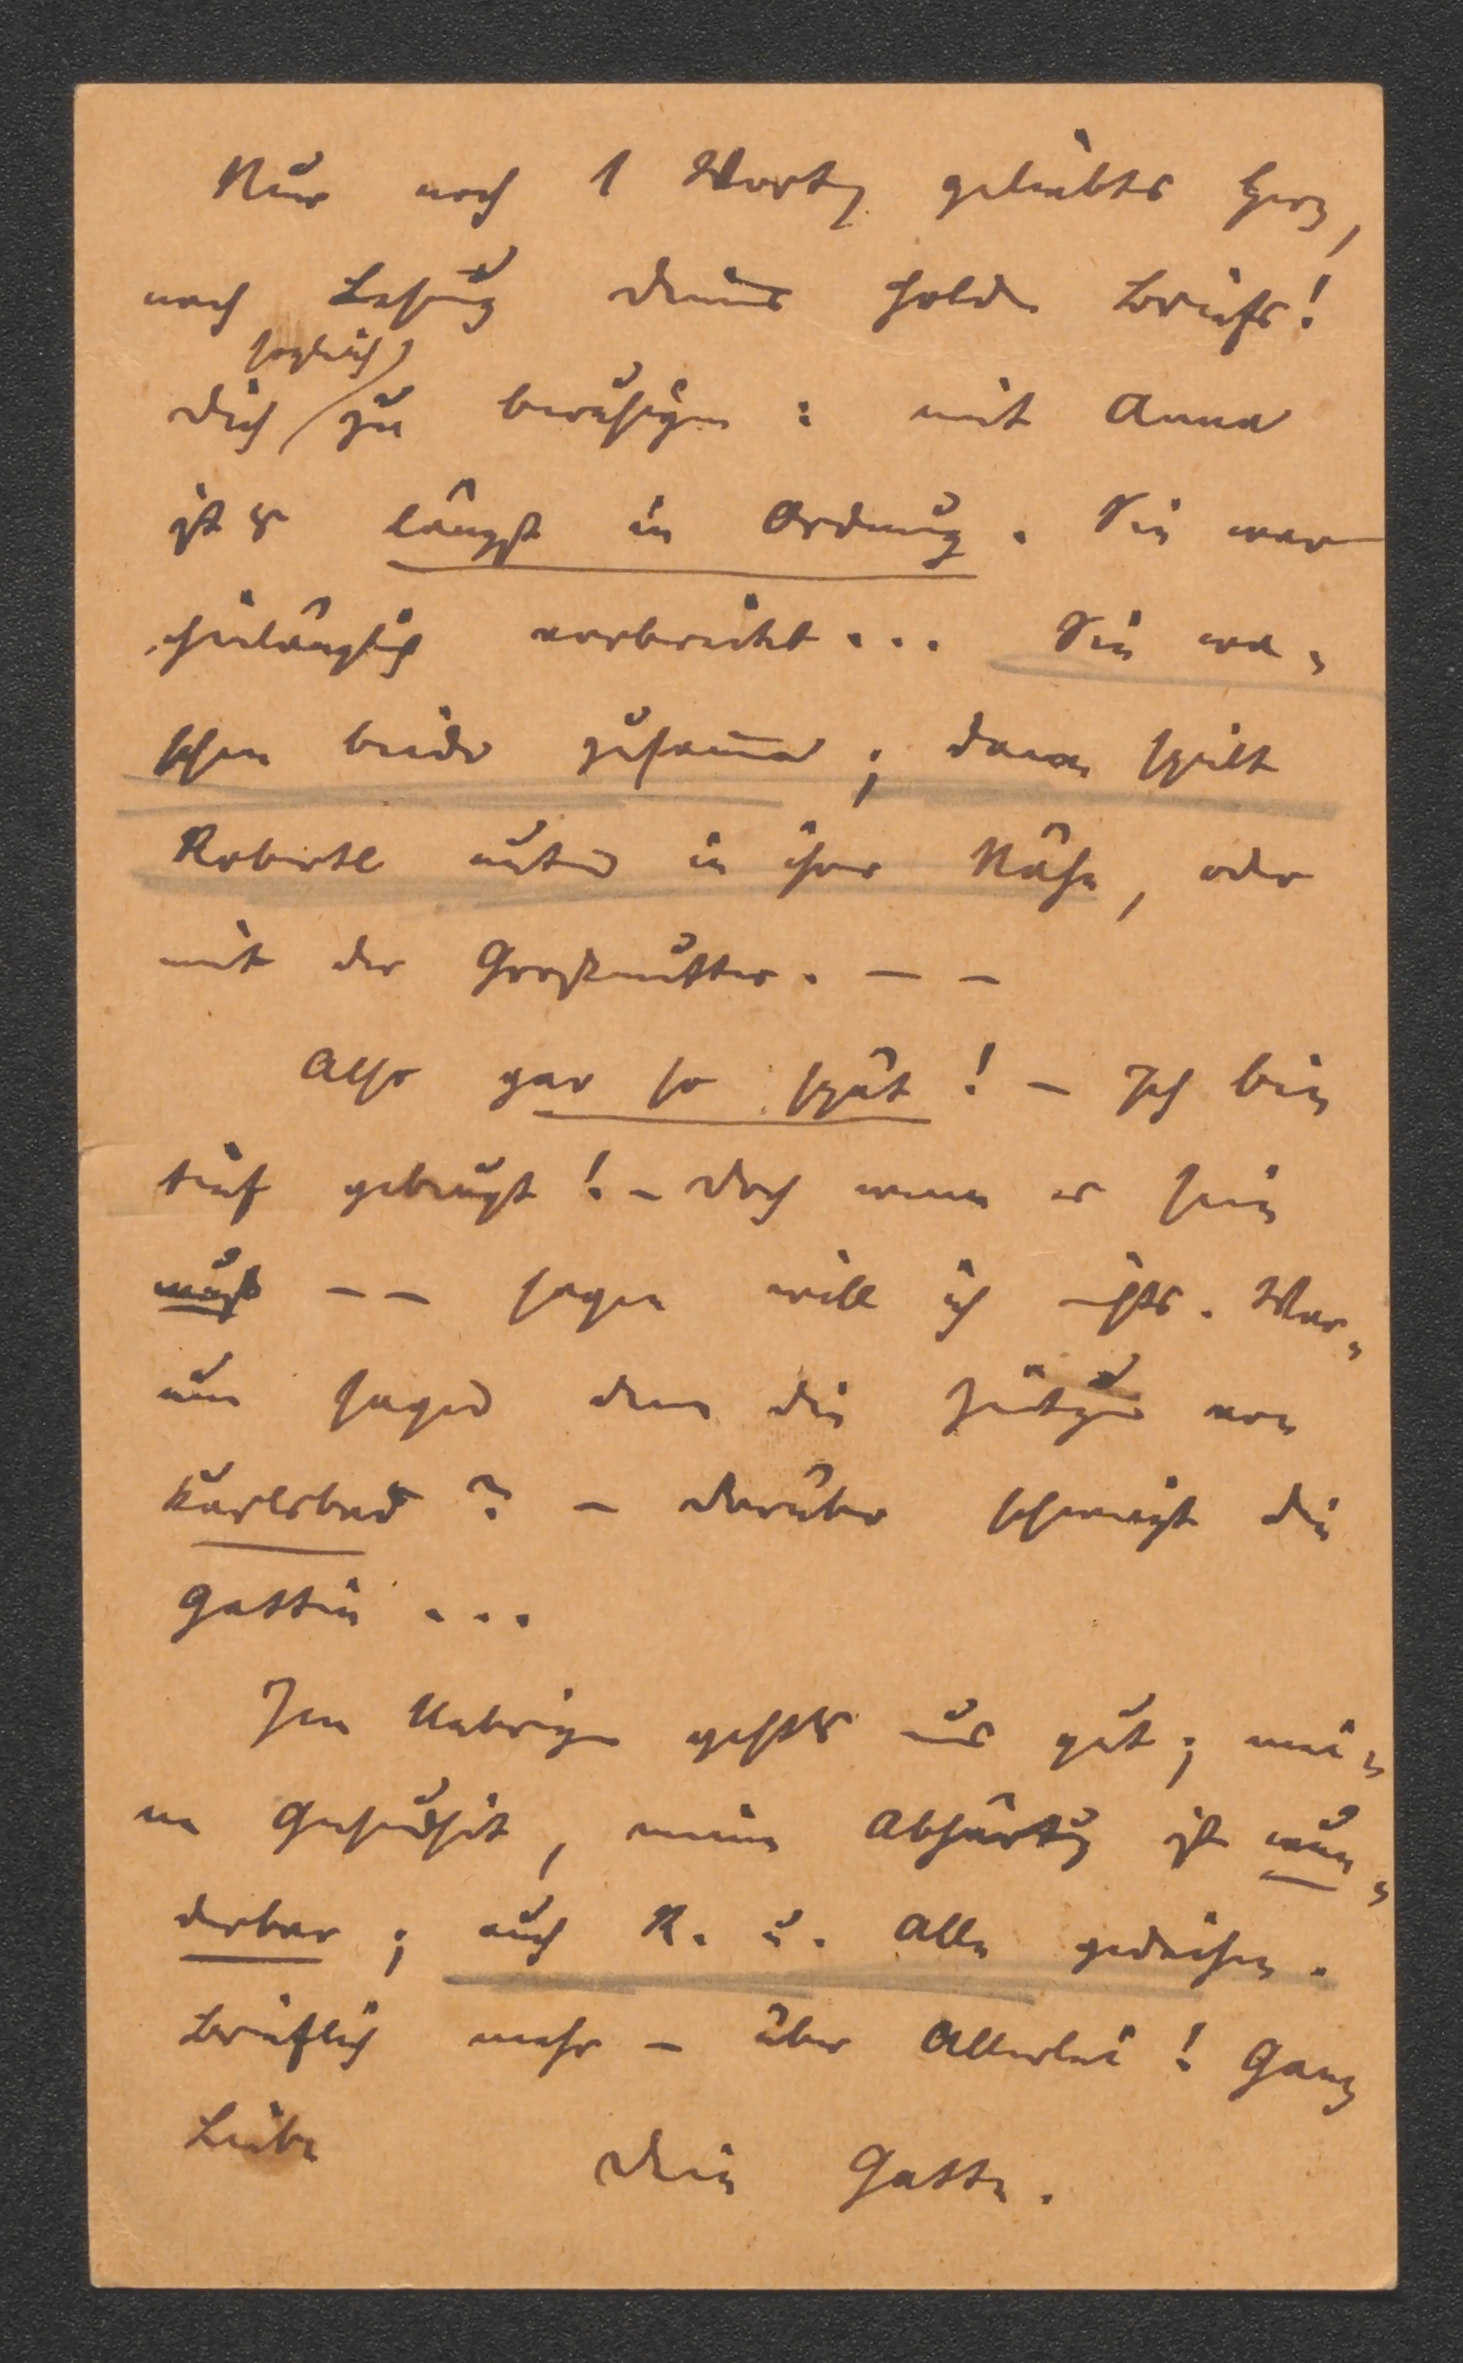 Nur noch 1 Wort, geliebtes Herz,
nach Lesung deines holden Briefs!
sogleich
Dich zu beruhigen : mit Anna
ist es längst in Ordnung. Sie war
hinlänglich vorbereitet... Sie wa-
schen beide zusammen ; dann spielt
Robertl unten in ihrer Nähe, oder
mit der Großmutter. – –
Also gar so spät ! – Ich bin
tief gebeugt ! – Doch wenn es sein
muß – – sagen will ich nichts. War-
um sagen denn die Zeitungen von
Karlsbad ? – darüber schweigt die
Gattin ...
Im Uebrigen geht's uns gut ; mei-
ne Gesundheit, meine Abhärtung ist wun-
derbar ; auch R. u. Alle gedeihen.
Brieflich mehr – über Allerlei ! Ganz
Liebe Dein Gatte.